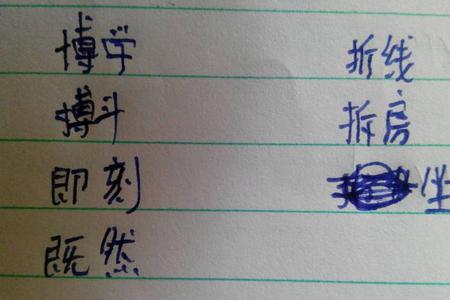 博学 折线
搏斗 拆房
即刻 坐
既然